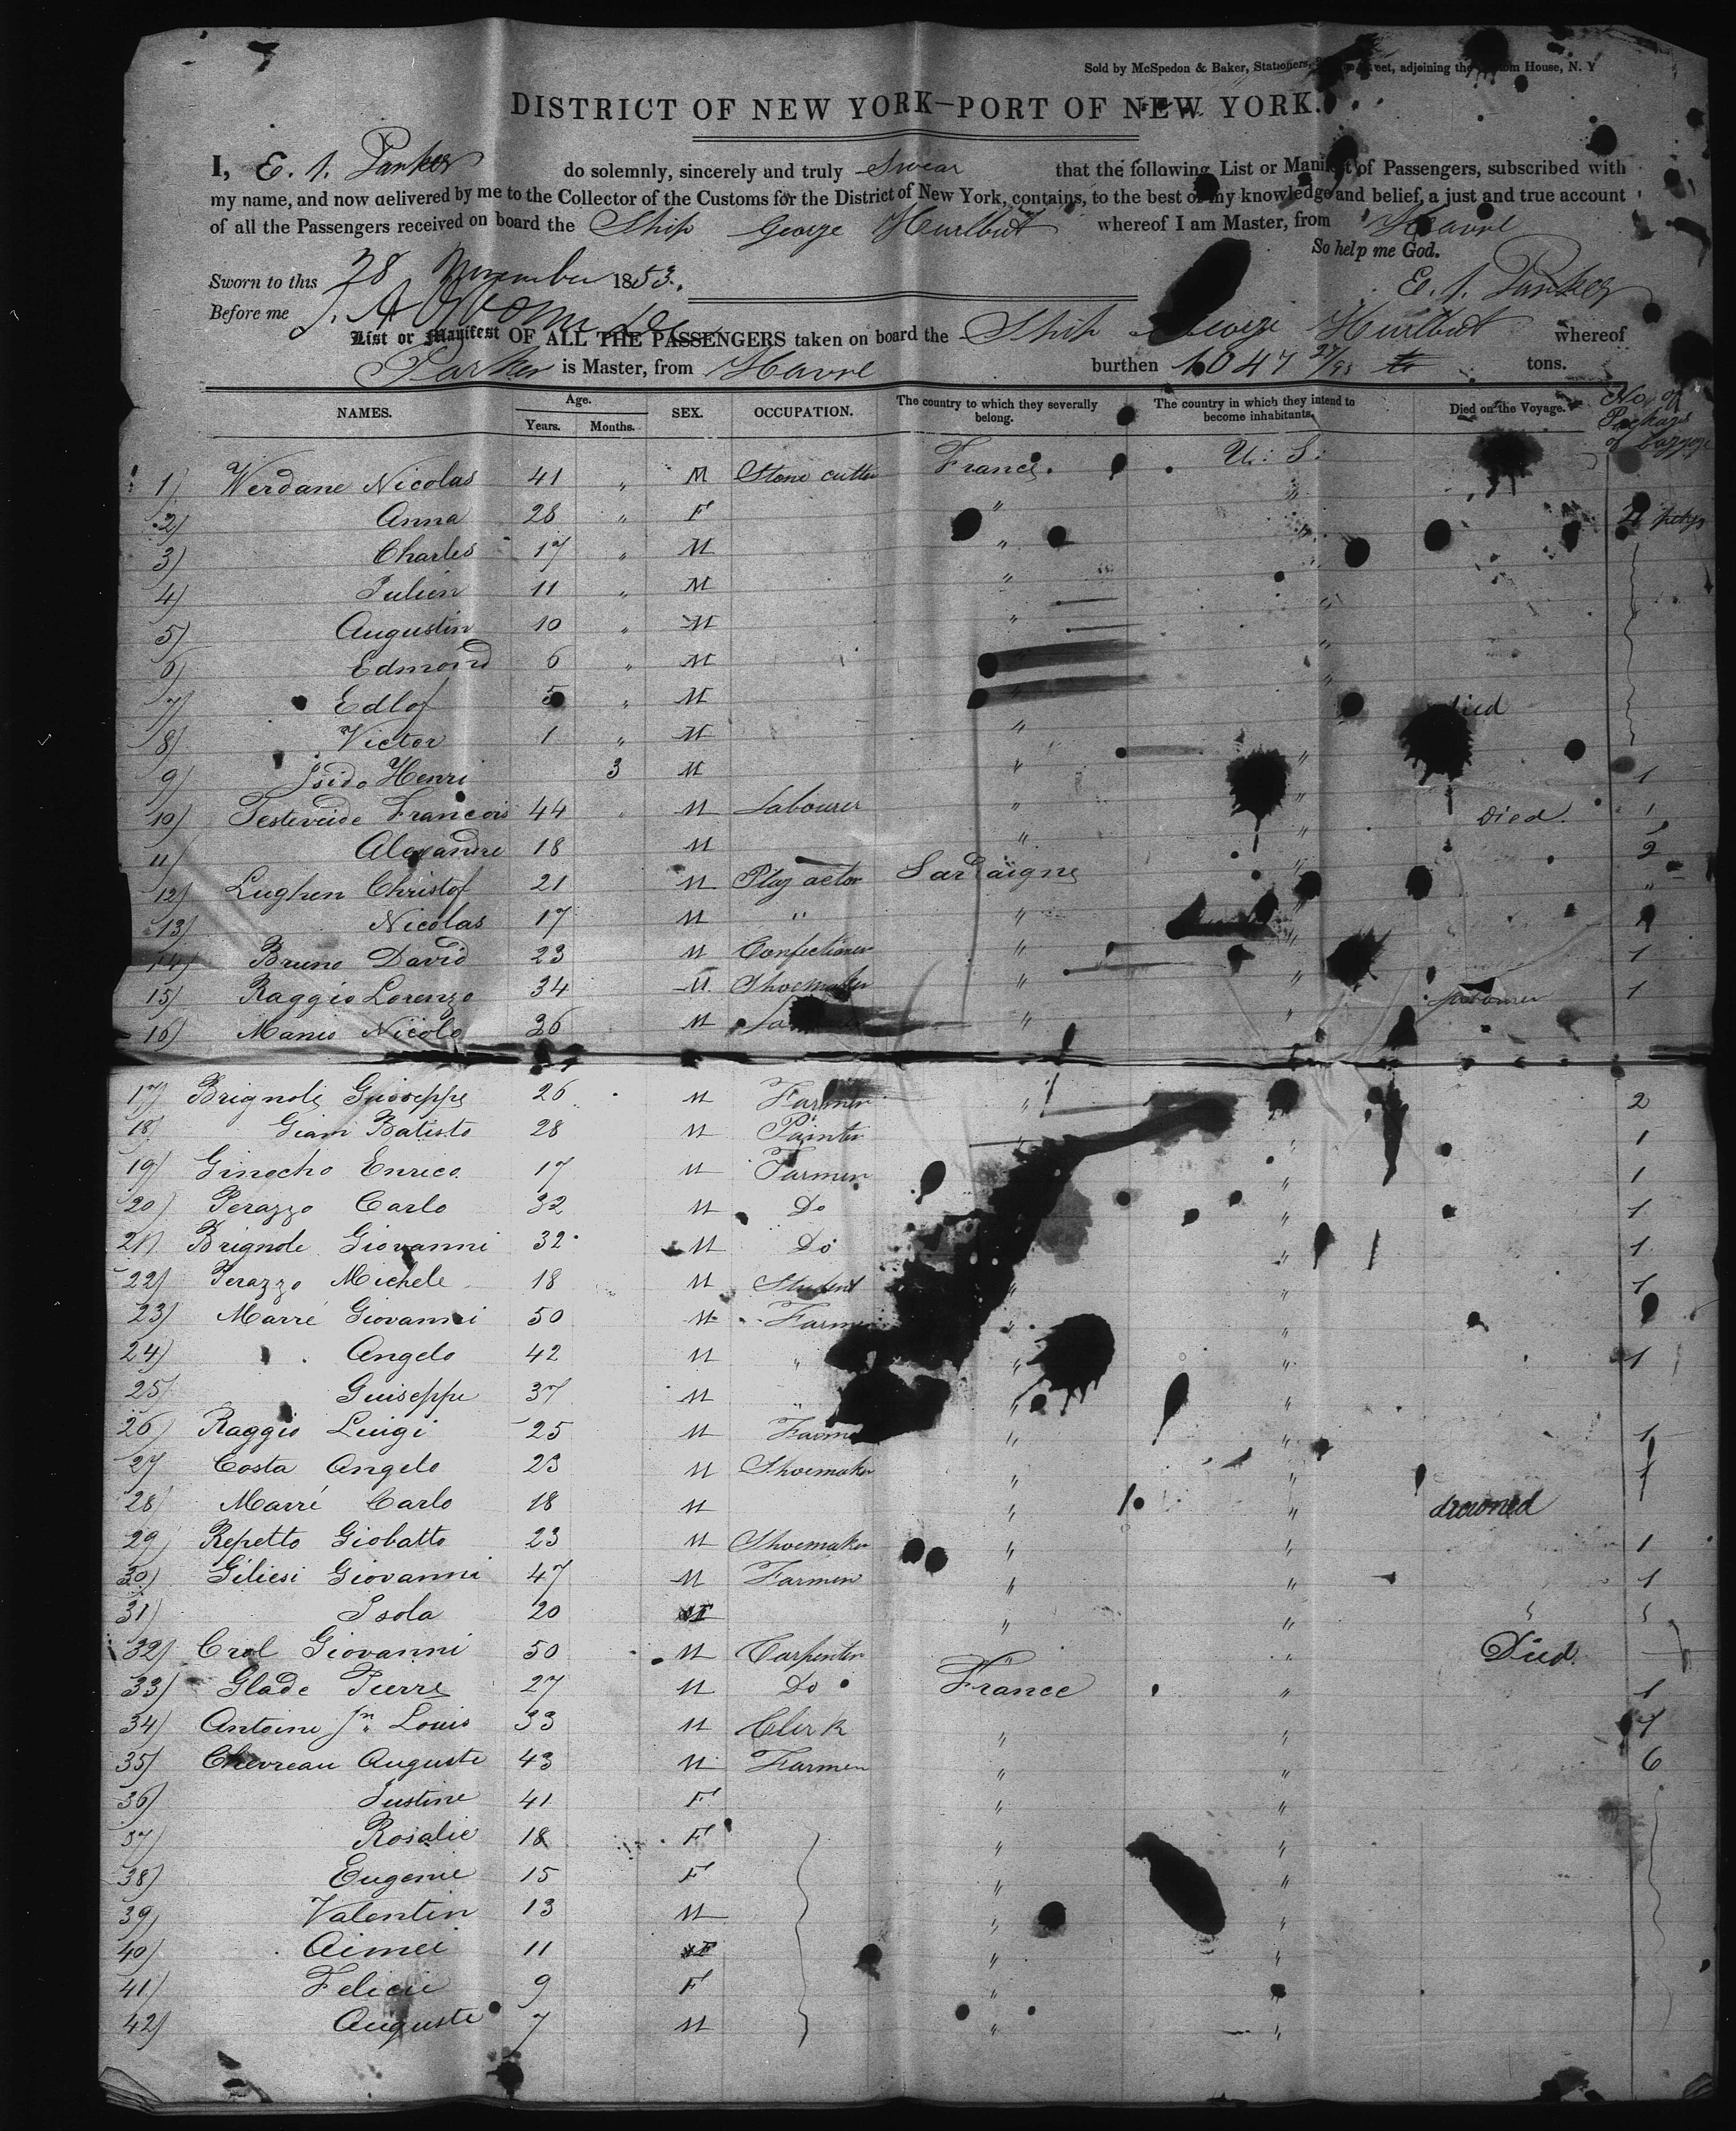 Sold by McSpedon & Baker, Stationers, Street, adjoining the Custom House, N. Y
DISTRICT OF NEW YORK—PORT OF NEW YORK.
I, E. A. Parker do solemnly, sincerely and truly Swear that the following List or Manifest of Passengers, subscribed with
my name, and now delivered by me to the Collector of the Customs for the District of New York, contains, to the best of my knowledge and belief, a just and true account
of all the Passengers received on board the Ship George Hurlbut whereof I am Master, from Havre
So help me God.
Sworn to this 28 November 1853.
E. A. Parker
Before me
List or Manifest OF ALL THE PASSENGERS taken on board the Ship George Hurlbut whereof
Parker is Master, from Havre burthen 1047 27/95 tons.
NAMES. Age. Years. Months. SEX. OCCUPATION. The country to which they severally belong. The country in which they intend to become inhabitants. Died on the Voyage. No. of Packages of baggage
1) Werdane Nicolas 41 " M Stone cutter France. U: S:
2) Anna 28 " F " " pckgs
3) Charles 17 " M " "
4) Julien 11 " M " "
5) Augustin 10 " M " "
6) Edmond 6 " M "
7) Edlof 5 " M " " died
8) Victor 1 " M "
9) Isido Henri 3 M " " 1
10) Testevuide Francois 44 " M Labourer " " Died. 1
11) Alexandre 18 M " " 2
12) Lughen Christof 21 M Play actor Sardaigne " "
13) Nicolas 17 M " " "
14) Bruno David 23 M Confectioner " " 1
15) Raggio Lorenzo 34 M Shoemaker " " 1
16) Manis Nicolo 36 M " "
17) Brignole Guiseppe 26 M Farmer " 2
18) Giam Batisto 28 M Painter " " 1
19) Ginocho Enrico 17 M Farmer " 1
20) Perazzo Carlo 32 M Do " 1
21) Brignole Giovanni 32 M Do " 1
22) Perazzo Michele 18 M Student " " 1
23) Marré Giovanni 50 M Farmer " "
24) Angelo 42 M " " " 1
25) Guiseppe 37 M " " "
26) Raggio Luigi 25 M Farmer " " 1
27) Costa Angelo 23 M Shoemaker " " 1
28) Marré Carlo 18 M " " drowned
29) Repetto Giobatto 23 M Shoemaker " " 1
30) Giliesi Giovanni 47 M Farmer " " 1
31) Isola 20 F " "
32) Crol Giovanni 50 M Carpenter " " Died.
33) Glade Pierre 27 M Do France " 1
34) Antoine Jn Louis 33 M Clerk " "
35) Chevreau Auguste 43 M Farmer " " 6
36) Justine 41 F " "
37) Rosalie 18 F " "
38) Eugenie 15 F " "
39) Valentin 13 M " "
40) Aimei 11 F " "
41) Felicie 9 F "
42) Auguste 7 M " "